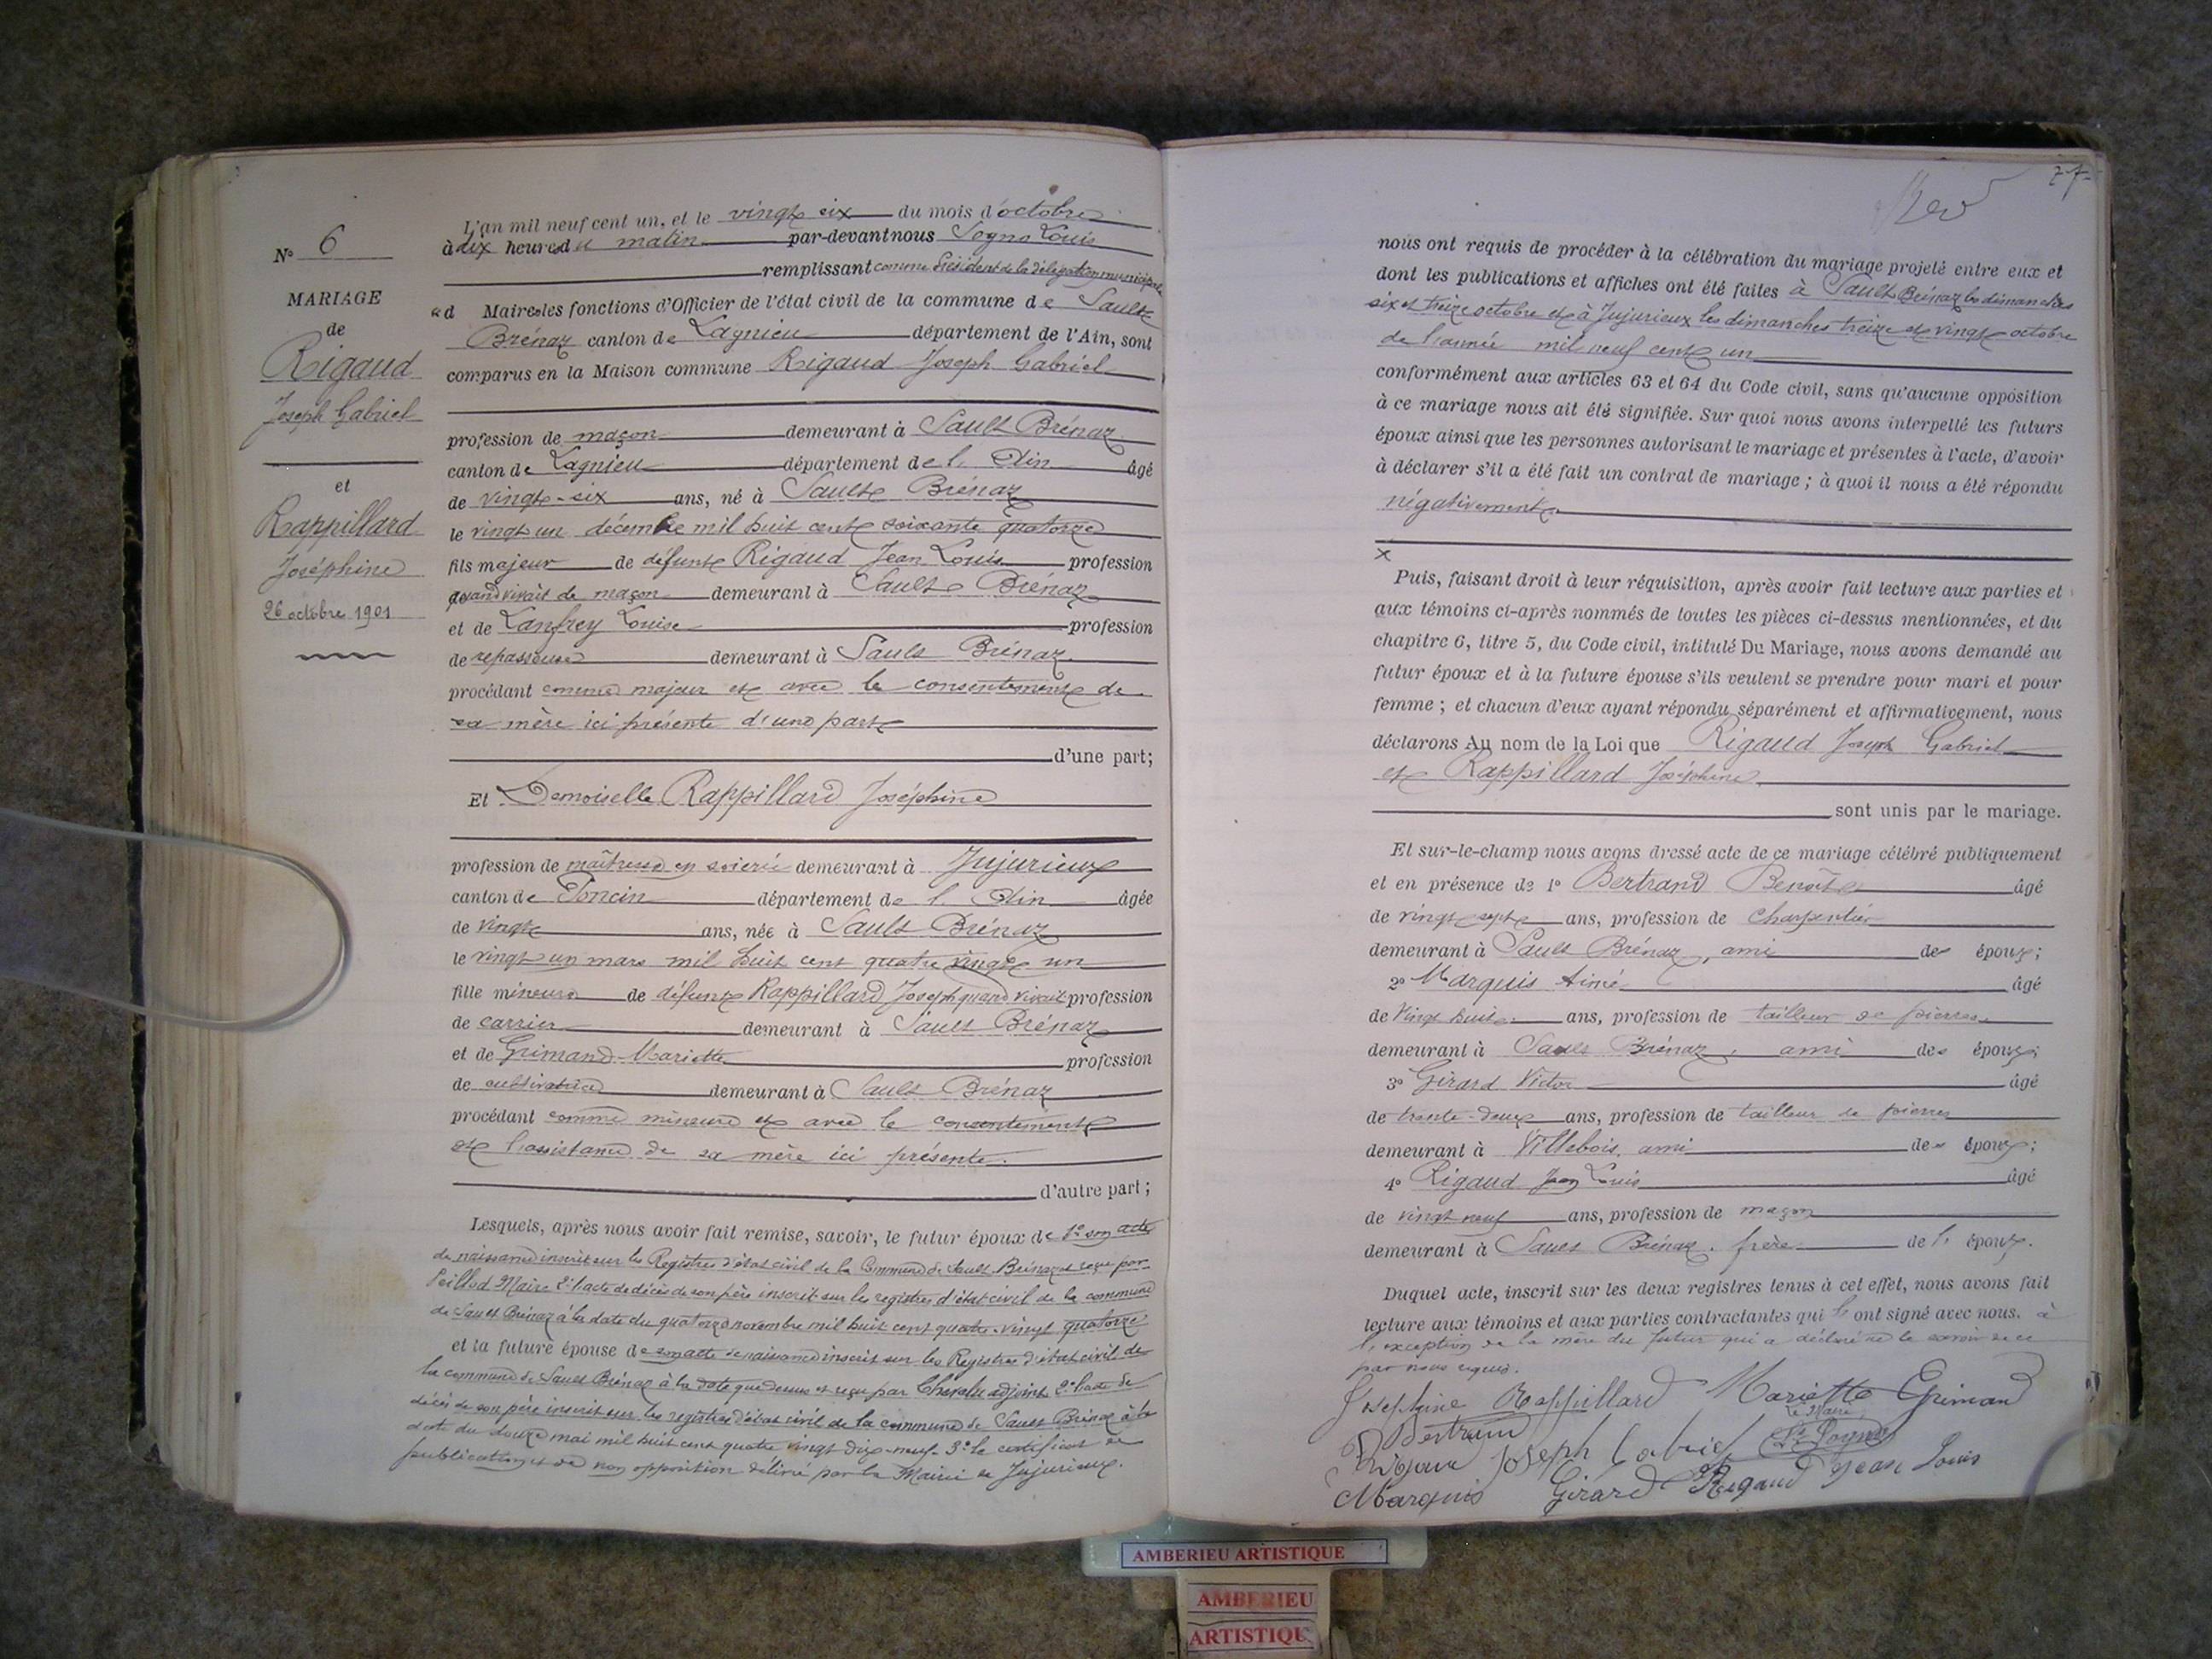 N° 6
MARIAGE
de
Rigaud
Joseph Gabriel
et
Rappillard
Joséphine
26 octobre 1901
L'an mil neuf cent un, et le vingt six du mois d'octobre
à dix heures du matin par-devant nous Sogno Louis
remplissant comme Président de la délégation municipale
Maire les fonctions d'Officier de l'état civil de la commune de Sault
Brénaz canton de Lagnieu département de l'Ain, sont
comparus en la Maison commune Rigaud Joseph Gabriel
profession de maçon demeurant à Sault Brénaz
canton de Lagnieu département de l'Ain âgé
de vingt-six ans, né à Sault Brénaz
le vingt un décembre mil huit cent soixante quatorze
fils majeur de défunt Rigaud Jean Louis profession
quand vivait de maçon demeurant à Sault Brénaz
et de Lanfrey Louise profession
de repasseuse demeurant à Sault Brénaz
procédant comme majeur et avec le consentement de
sa mère ici présente d'une part
d'une part;
Et Demoiselle Rappillard Joséphine
profession de maîtresse en soierie demeurant à Jujurieux
canton de Poncin département de l'Ain âgée
de vingt ans, née à Sault Brénaz
le vingt un mars mil huit cent quatre vingt un
fille mineure de défunt Rappillard Joseph quand vivait profession
de carrier demeurant à Sault Brénaz
et de Grimand Mariette profession
de cultivatrice demeurant à Sault Brénaz
procédant comme mineure et avec le consentement
et l'assistance de sa mère ici présente.
d'autre part;
Lesquels, après nous avoir fait remise, savoir, le futur époux de 1° son acte
de naissance inscrit sur les Registres d'état civil de la Commune de Sault Brénaz et reçu par
Peillod Maire 2° l'acte de décès de son père inscrit sur les registres d'état civil de la commune
de Sault Brénaz à la date du quatorze novembre mil huit cent quatre-vingt quatorze
et la future épouse de son acte de naissance inscrit sur les Registres d'état civil de
la commune de Sault Brénaz à la date que dessus et reçu par adjoint 2° l'acte de
décès de son père inscrit sur les registres d'état civil de la commune de Sault Brénaz à la
date du douze mai mil huit cent quatre vingt dix-neuf 3° le certificat de
publications et de non opposition délivré par la Mairie de Jujurieux.
77
nous ont requis de procéder à la célébration du mariage projeté entre eux et
dont les publications et affiches ont été faites à Sault Brénaz les dimanches
six et treize octobre et à Jujurieux les dimanches treize et vingt octobre
de l'année mil neuf cent un
conformément aux articles 63 et 64 du Code civil, sans qu'aucune opposition
à ce mariage nous ait été signifiée. Sur quoi nous avons interpellé les futurs
époux ainsi que les personnes autorisant le mariage et présentes à l'acte, d'avoir
à déclarer s'il a été fait un contrat de mariage; à quoi il nous a été répondu
négativement.
x
Puis, faisant droit à leur réquisition, après avoir fait lecture aux parties et
aux témoins ci-après nommés de toutes les pièces ci-dessus mentionnées, et du
chapitre 6, titre 5, du Code civil, intitulé Du Mariage, nous avons demandé au
futur époux et à la future épouse s'ils veulent se prendre pour mari et pour
femme; et chacun d'eux ayant répondu séparément et affirmativement, nous
déclarons Au nom de la Loi que Rigaud Joseph Gabriel
et Rappillard Joséphine
sont unis par le mariage.
Et sur-le-champ nous avons dressé acte de ce mariage célébré publiquement
et en présence de 1° Bertrand Benoît âgé
de vingt sept ans, profession de charpentier
demeurant à Sault Brénaz, ami des époux;
2° Marquis Aimé âgé
de vingt huit ans, profession de tailleur de pierres
demeurant à Sault Brénaz, ami des époux;
3° Girard Victor âgé
de trente-deux ans, profession de tailleur de pierres
demeurant à Villebois, ami des époux;
4° Rigaud Jean Louis âgé
de vingt neuf ans, profession de maçon
demeurant à Sault Brénaz, frère de l'époux.
Duquel acte, inscrit sur les deux registres tenus à cet effet, nous avons fait
lecture aux témoins et aux parties contractantes qui l'ont signé avec nous. à
l'exception de la mère du futur qui a déclaré ne le savoir de ce
par nous requis.
Joséphine Rappillard Mariette Grimand
Le Maire
Bertrand
Joseph Gabriel Ls Sogno
Marquis Girard Rigaud Jean Louis
AMBERIEU ARTISTIQUE
AMBERIEU
ARTISTIQUE